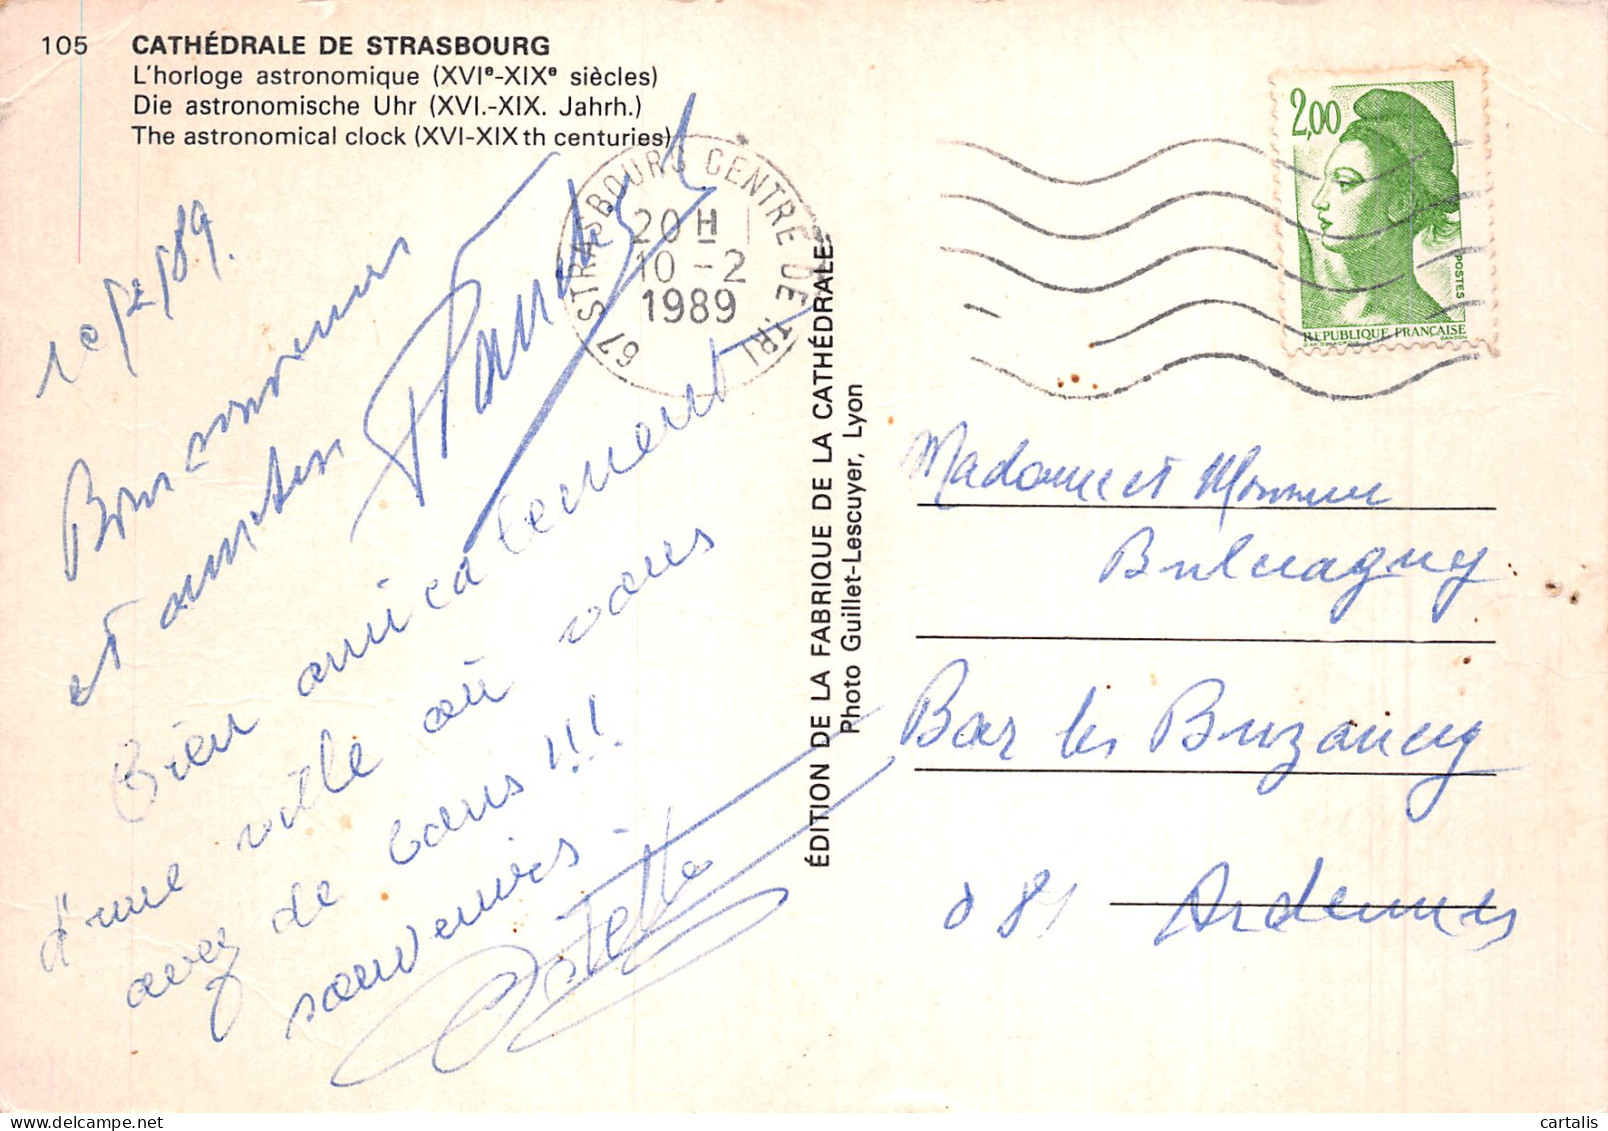 105 CATHÉDRALE DE STRASBOURG
L'horloge astronomique (XVIe-XIXe siècles)
Die astronomische Uhr (XVI.-XIX. Jahrh.)
The astronomical clock (XVI-XIX th centuries)
10/2/89.
Bons souvenirs
et
Bien amicalement
d'une ville où vous
avez de bons!!!
souvenirs.
67 STRASBOURG CENTRE DE TRI
20 H
10 - 2
1989
ÉDITION DE LA FABRIQUE DE LA CATHÉDRALE
Photo Guillet-Lescuyer, Lyon
2,00
POSTES
REPUBLIQUE FRANÇAISE
GANDON
Madame et Monsieur
Bar les Buzancy
Ardennes
cartalis